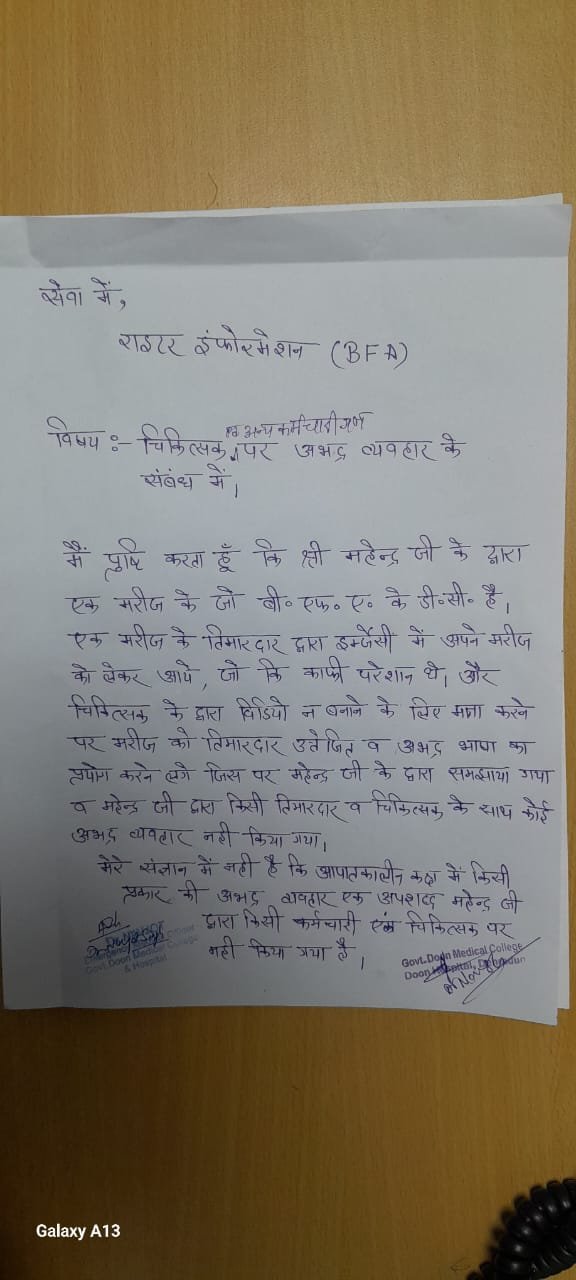 सेवा में,
राइटर इंफोरमेशन (BFA)
एव अन्य कर्मचारी गण
विषय :- चिकित्सक पर अभद्र व्यवहार के
संबंध में।
मैं पुष्टि करता हूँ कि श्री महेन्द्र जी के द्वारा
एक मरीज के जो बी॰ एफ॰ ए॰ के डी॰सी॰ है,
एक मरीज के तिमारदार द्वारा इमर्जेंसी में अपने मरीज
को लेकर आये, जो कि काफी परेशान थे। और
चिकित्सक के द्वारा विडियो न बनाने के लिए मना करने
पर मरीज को तिमारदार उतेजित व अभद्र भाषा का
प्रयोग करने लगे जिस पर महेन्द्र जी के द्वारा समझाया गया
व महेन्द्र जी द्वारा किसी तिमारदार व चिकित्सक के साथ कोई
अभद्र व्यवहार नही किया गया।
मेरे संज्ञान में नही है कि आपातकालीन कक्ष में किसी
प्रकार की अभद्र व्यवहार एक अपशब्द महेन्द्र जी
द्वारा किसी कर्मचारी एंव चिकित्सक पर
नही किया गया है।
Emergency Medical Officer
Govt. Doon Medical College
& Hospital
Govt. Doon Medical College
Doon Hospital, Dehradun
Galaxy A13